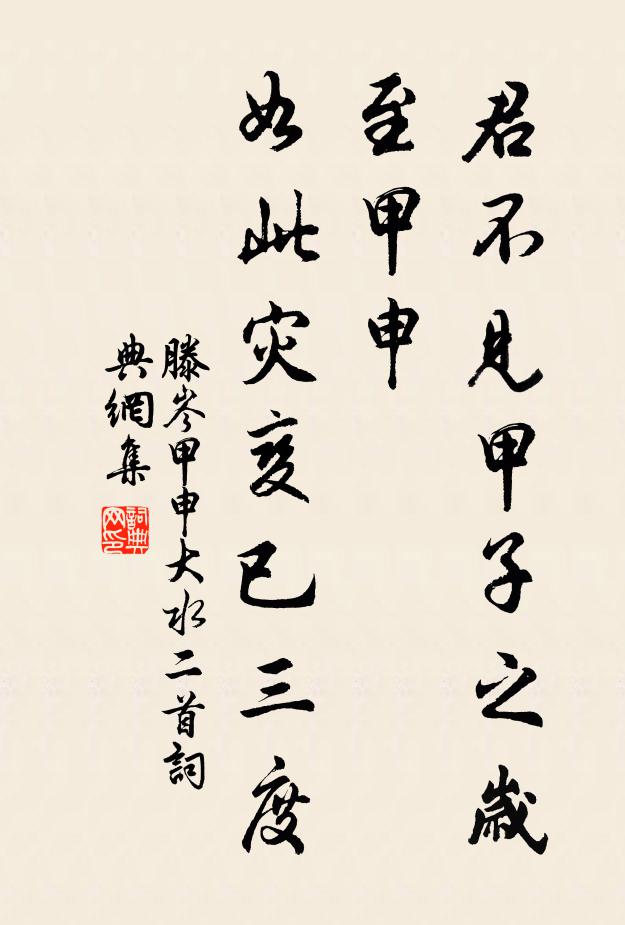 君不见甲子之歲
至甲申
如此灾变已三度
滕岑甲申大水二首詞
典網集
詞典
网印